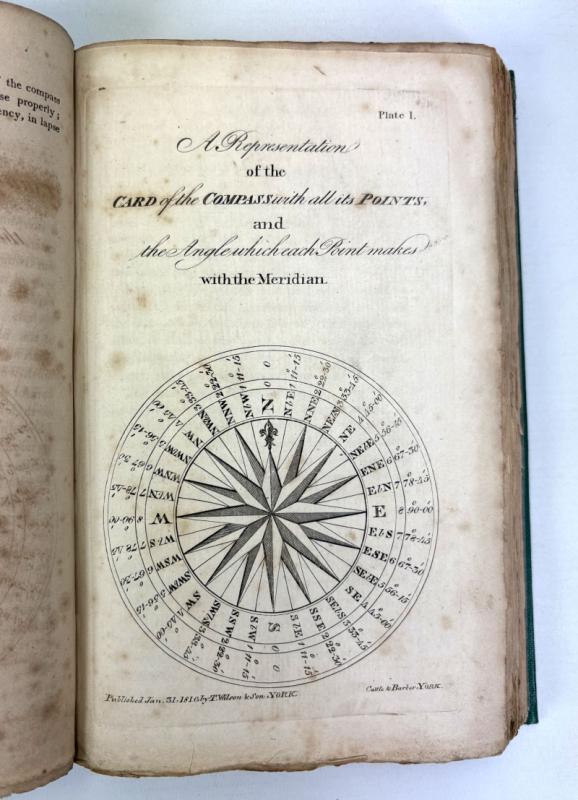 the compass
se properly;
ency, in lapse
Plate 1.
A Representation
of the
CARD of the COMPASS with all its POINTS,
and
the Angle which each Point makes
with the Meridian.
N 0 0
NbE 1 11-15
NNE 2 22-30
NEbN 3 33-45
NE 4 45-00
NEbE 5 56-15
ENE 6 67-30
EbN 7 78-45
E 8 90-00
EbS 7 78-45
ESE 6 67-30
SEbE 5 56-15
SE 4 45-00
SEbS 3 33-45
SSE 2 22-30
SbE 1 11-15
S 0 0
SbW 1 11-15
SSW 2 22-30
SWbS 3 33-45
SW 4 45-00
SWbW 5 56-15
WSW 6 67-30
WbS 7 78-45
W 8 90-00
WbN 7 78-45
WNW 6 67-30
NWbW 5 56-15
NW 4 45-00
NWbN 3 33-45
NNW 2 22-30
NbW 1 11-15
Published Jan. 31. 1810, by T. Wilson & Son YORK.
& Barber YORK.